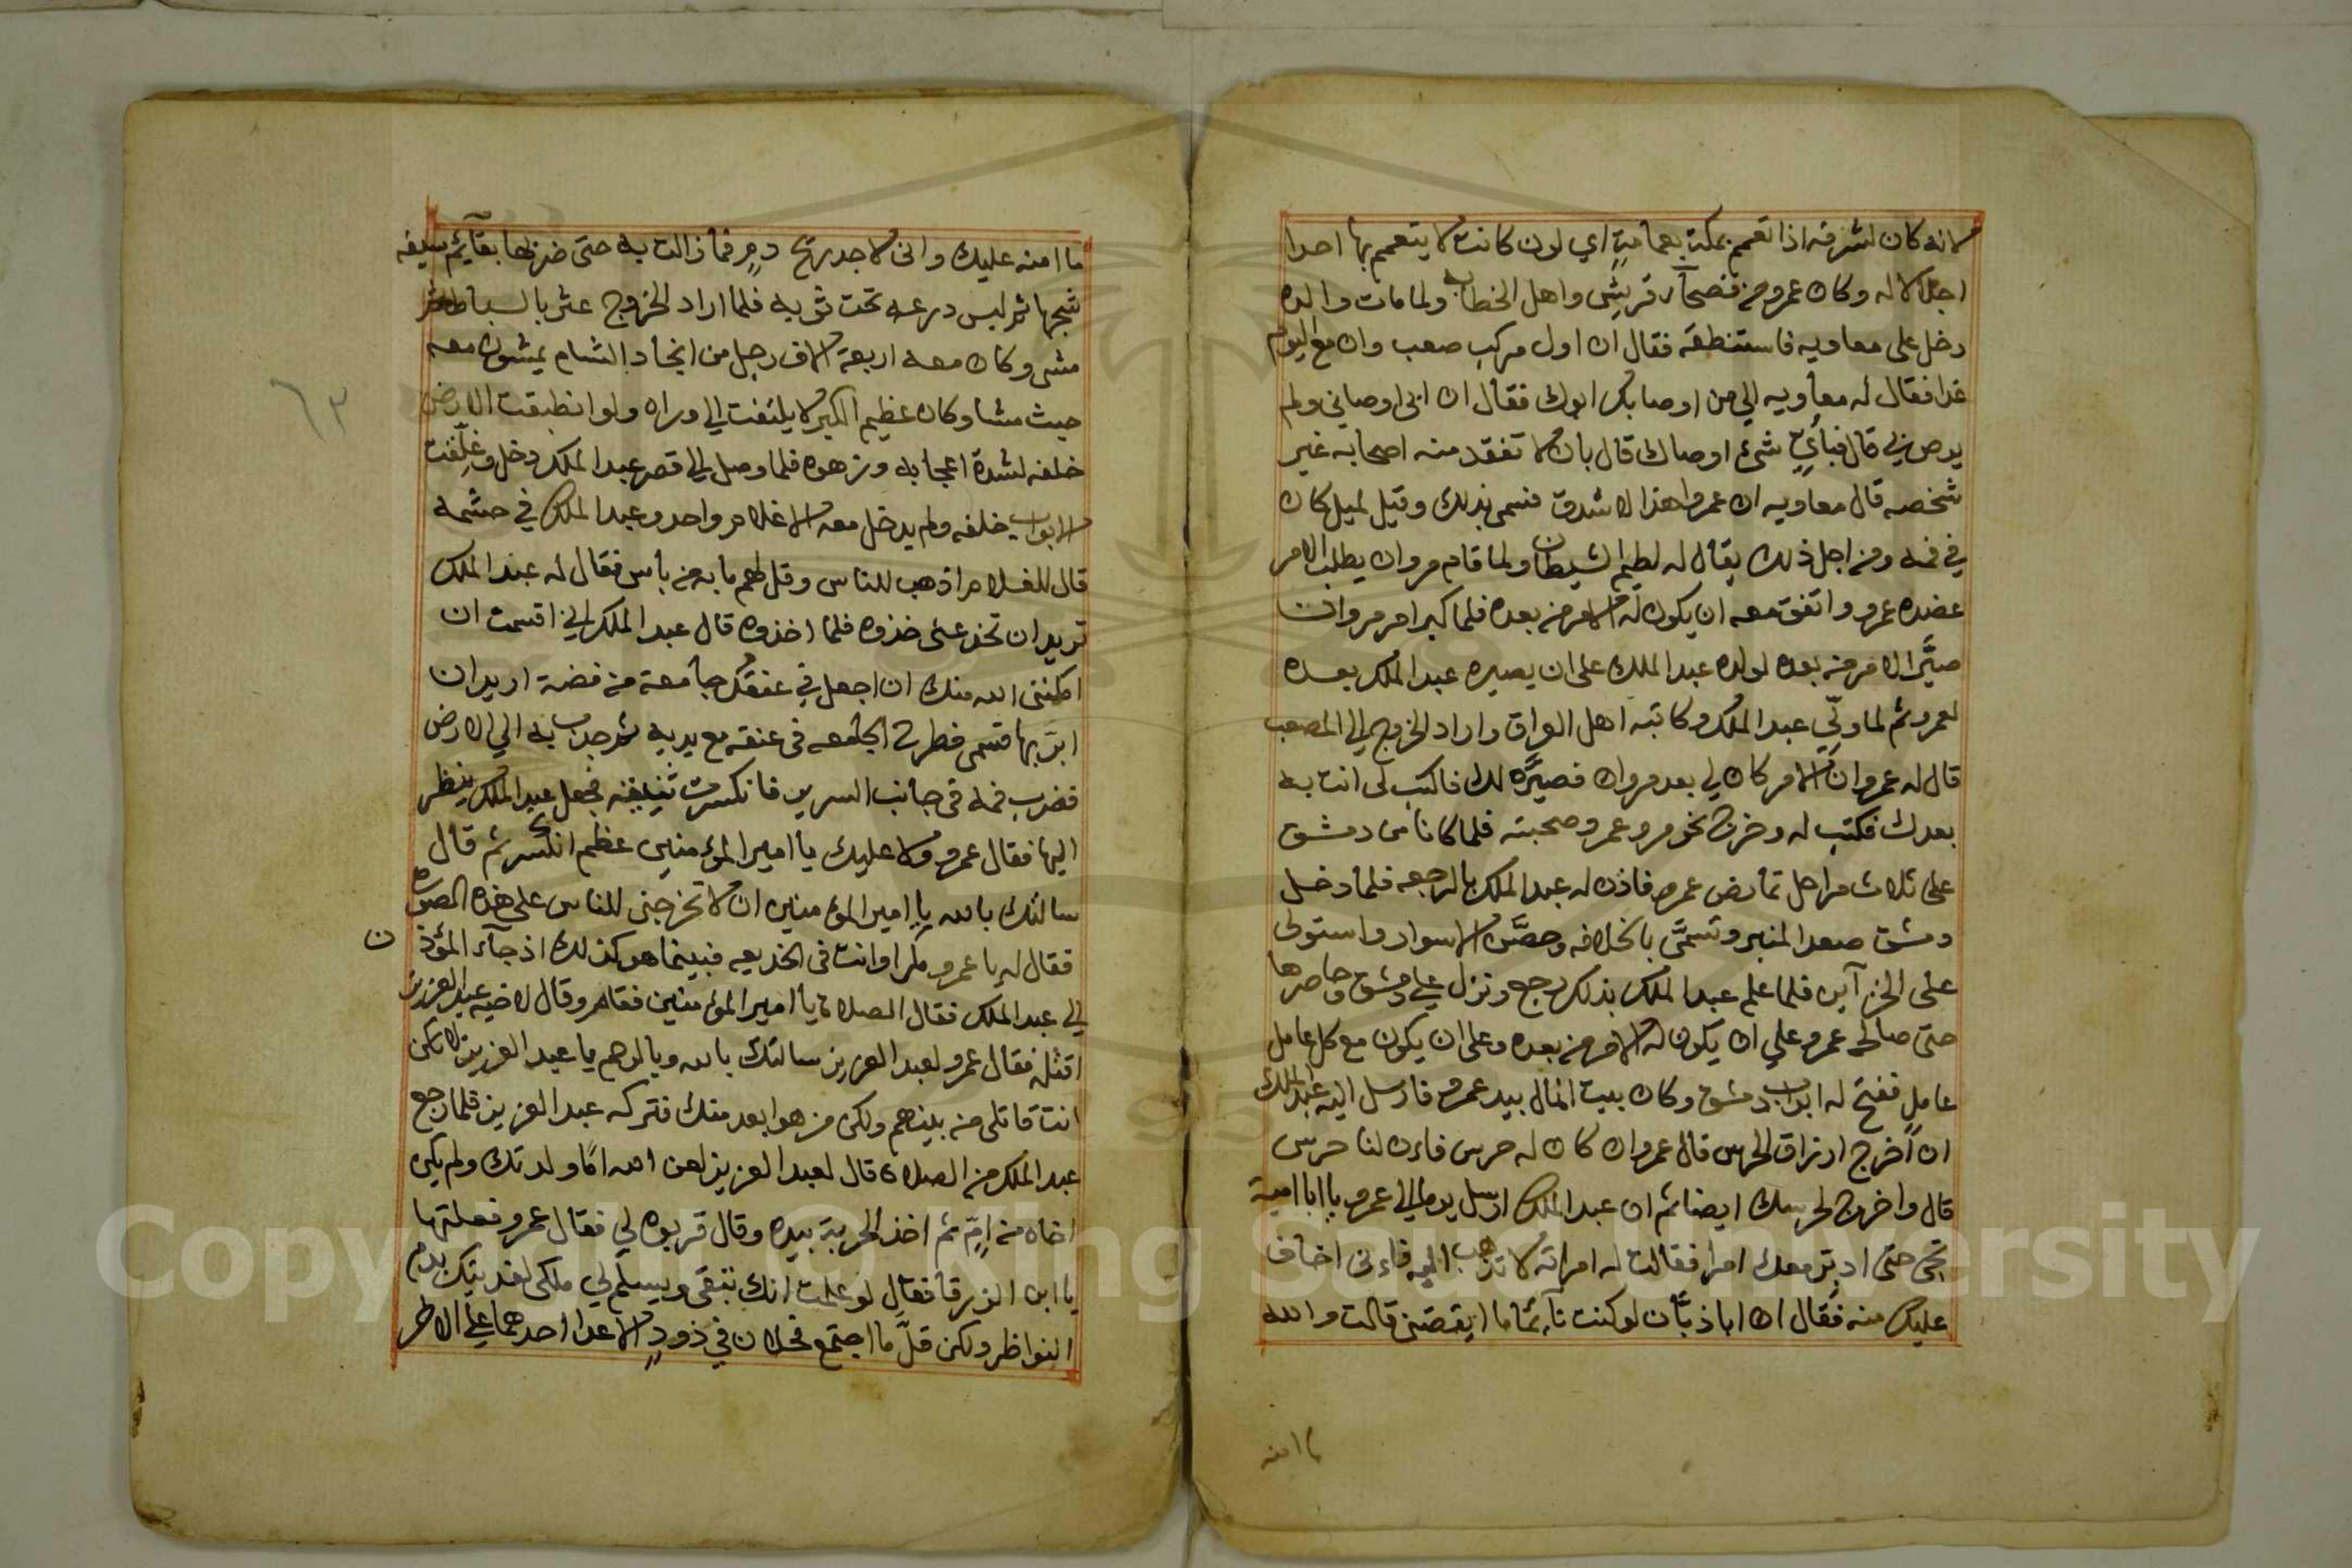 لانه كان لشرفه اذا تعمم بمكة بعمامةٍ اي لون كانت لا يتعمم بها احدا
اجلالا له وكان عمرو من فصحآء قريش واهل الخطابه ولما مات والده
دخل على معاويه فاستنطقه فقال ان اول مركب صعب وان مع اليوم
غدا فقال له معاويه الي من اوصا بك ابوك فقال ان ابى اوصاني ولم
يوص بي قال فبأيّ شئ اوصاك قال بان لا تفقد منه اصحابه غير
شخصه قال معاويه ان عمروا هذا لاشدق فسمى بذلك وقيل لميل كان
في فمه ومن اجل ذلك يقال له لطيم الشيطان ولما قام مروان يطلب الامر
عضده عمرو واتفق معه ان يكون له الامر من بعده فلما كبر امر مروان
صيَّر الامر من بعده لولده عبد الملك على ان يصيره عبد الملك بعده
لعمرو ثم لما ولّي عبد الملك وكاتبه اهل العراق واراد الخروج الي المصعب
قال له عمرو ان الامر كان لي بعد مروان فصيَّره لك فاكتب لى انت به
بعدك فكتب له وخرج نحو مرو عمرو صحبته فلما كانا من دمشق
على ثلاث مراحل تمارض عمرو فاذن له عبد الملك بالرجعه فلما دخل
دمشق صعد المنبر وتسمَّى بالخلافه وحصَّن الاسوار واستولى
على الخزآين فلما علم عبد الملك بذلك رجع ونزل علي دمشق وحاصرها
حتى صالح عمرو علي ان يكون له الامر من بعده وعلى ان يكون مع كل عامل
عاملٍ ففتح له ابواب دمشق وكان بيت المال بيد عمرو فارسل اليه عبد الملك
ان اَخرج ارزاق الحرس قال عمرو ان كان له حرس فاءن لنا حرس
قال واخرج لحرسك ايضا ثم ان عبد الملك ارسل يوما الي عمرو يا ابا امية
تجى حتى ادبّر معك امرا فقالت له امراته لا تذهب اليه فاءنى اخاف
عليك منه فقال ان ابا ذبَّان لو كنت نآئما ما ايقضنى قالت والله
ما امنه
ما امنه عليك وانى لاجد ريح دمٍ فما زالت به حتى ضربها بقآئم سيفه
شجها ثم لبس درعه تحت ثوبه فلما اراد الخروج عثر بالبساط ثم
مشى وكان معه اربعة الاف رجل من انجاد الشام يمشون معه
حيث مشا وكان عظيم الكبر لا يلتفت الي وراه ولو انطبقت الارض
خلفه لشدة اعجابه وزهوه فلما وصل الي قصر عبد الملك دخل وغلّقت
الابواب خلفه ولم يدخل معه الا غلام واحد وعبد الملك في حشمه
قال للغلام اذهب للناس وقل لهم ما به من باس فقال له عبد الملك
تريد ان تخدعنى خذوه فلما اخذوه قال عبد الملك اني اقسمت ان
امكننى الله منك ان اجعل في عنقك جامعة من فضة اريد ان
ابرّ بها قسمى فطرح الجامعه فى عنقه مع يديه ثم جذب به الي الارض
فضرب فمه فى جانب السرير فانكسرت ثنيته فجعل عبد الملك ينظر
اليها فقال عمرو ولا عليك يا امير المؤمنين عظم انكسر ثم قال
سالتك بالله يا امير المؤمنين ان لا تخرجنى للناس على هذه الصوره
فقال له يا عمرو مكرا وانت فى الخديعه فبينما هو كذلك اذ جآء المؤذن
الي عبد الملك فقال الصلاة يا امير المؤمنين فقام وقال لاخيه عبد العزيز
اقتله فقال عمرو لعبد العزيز سالتك بالله وبالرحم يا عبد العزيز لا تكن
انت قاتلى من بينهم ولكن من هو ابعد منك فتركه عبد العزيز فلما رجع
عبد الملك من الصلاة قال لعبد العزيز لعن الله امًّا ولدتك ولم يكن
اخاه من امٍّ ثم اخذ الحربة بيده وقال قربوه لي فقال عمرو فعلتها
يا ابن الزرقا فقال لو علمت انك تبقى ويسلم لي ملكى لفديتك بدم
النواظر ولكن قلَّ ما اجتمع فحلان في ذودٍ الا عدا احدهما علي الاخر
٦٣